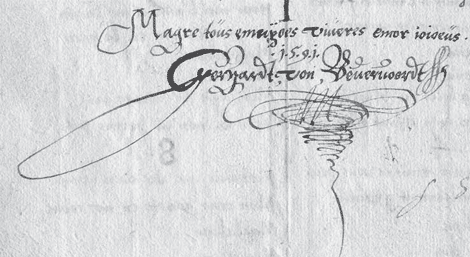 Magre tous envijoes viveres encor ioieus.
.1.5.9.1.
Gerhardt von Bevervoerdt